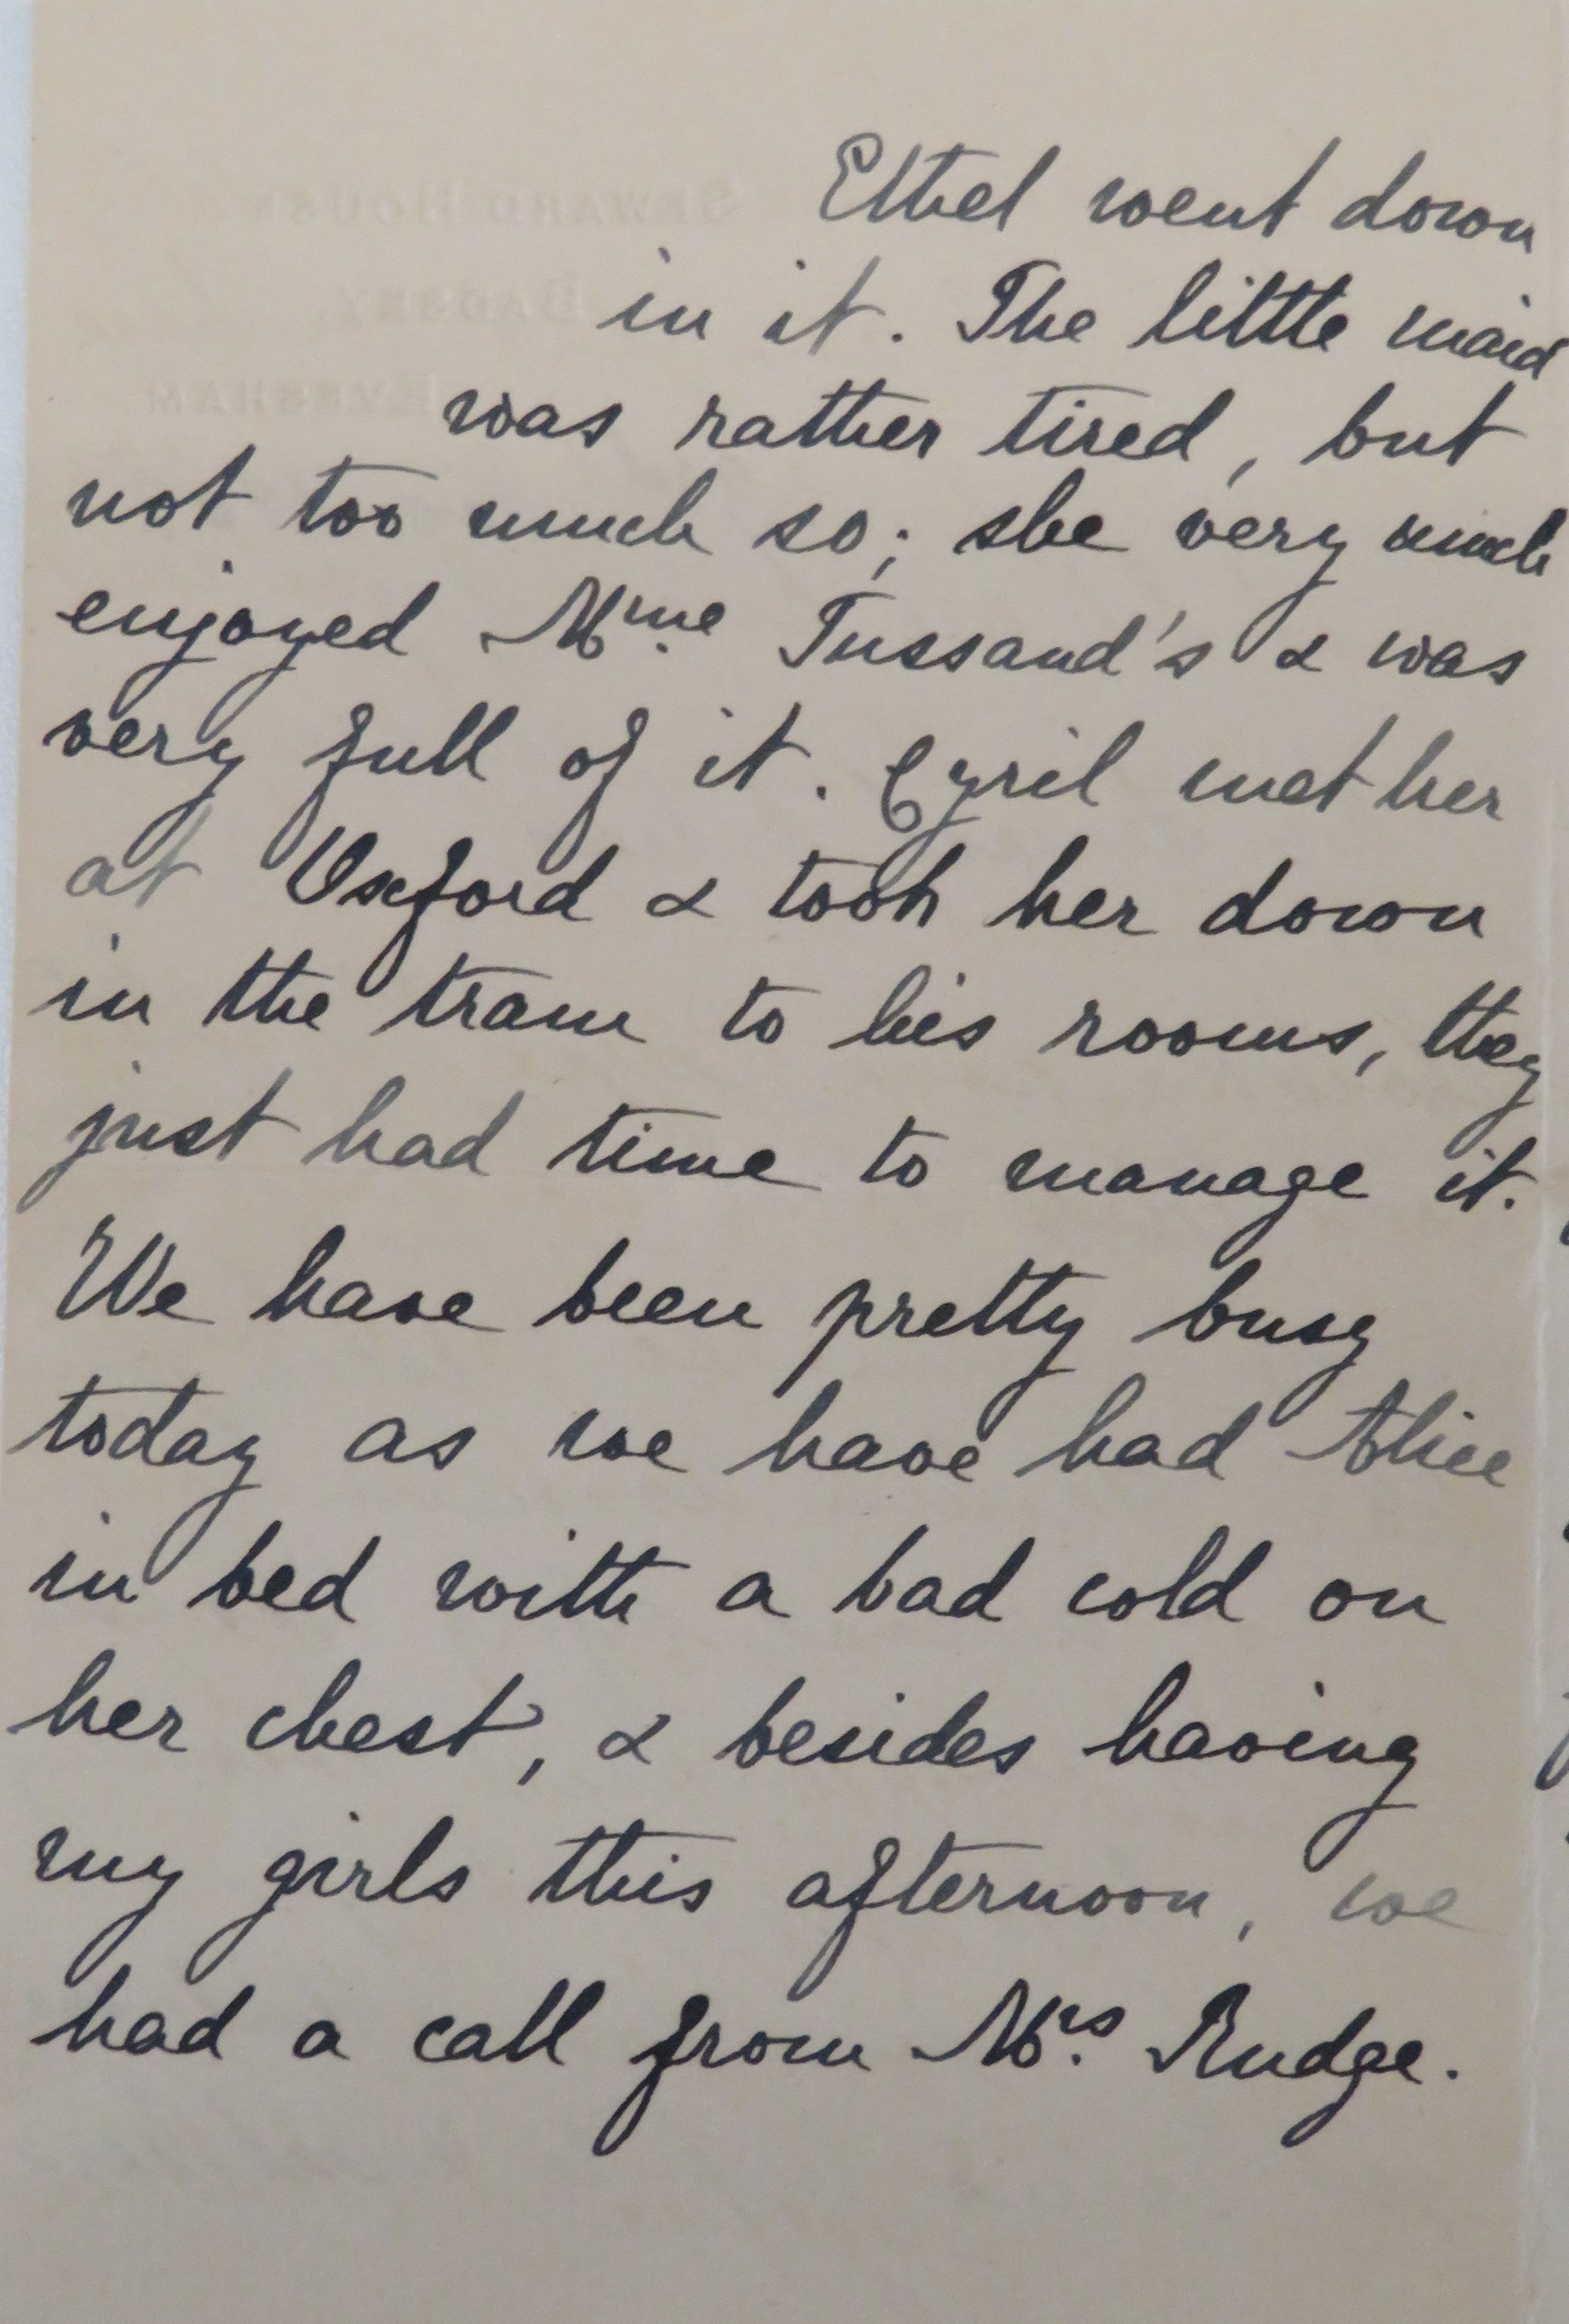 Ethel went down
in it. The little maid
was rather tired, but
not too much so; she very much
enjoyed Mme. Tussaud's & was
very full of it. Cyril met her
at Oxford & took her down
in the tram to his rooms, they
just had time to manage it.
We have been pretty busy
today as we have had Alice
in bed with a bad cold on
her chest, & besides having
my girls this afternoon, we
had a call from Mrs. Rudge.
SEWARD HOUSE
BADSEY,
EVESHAM